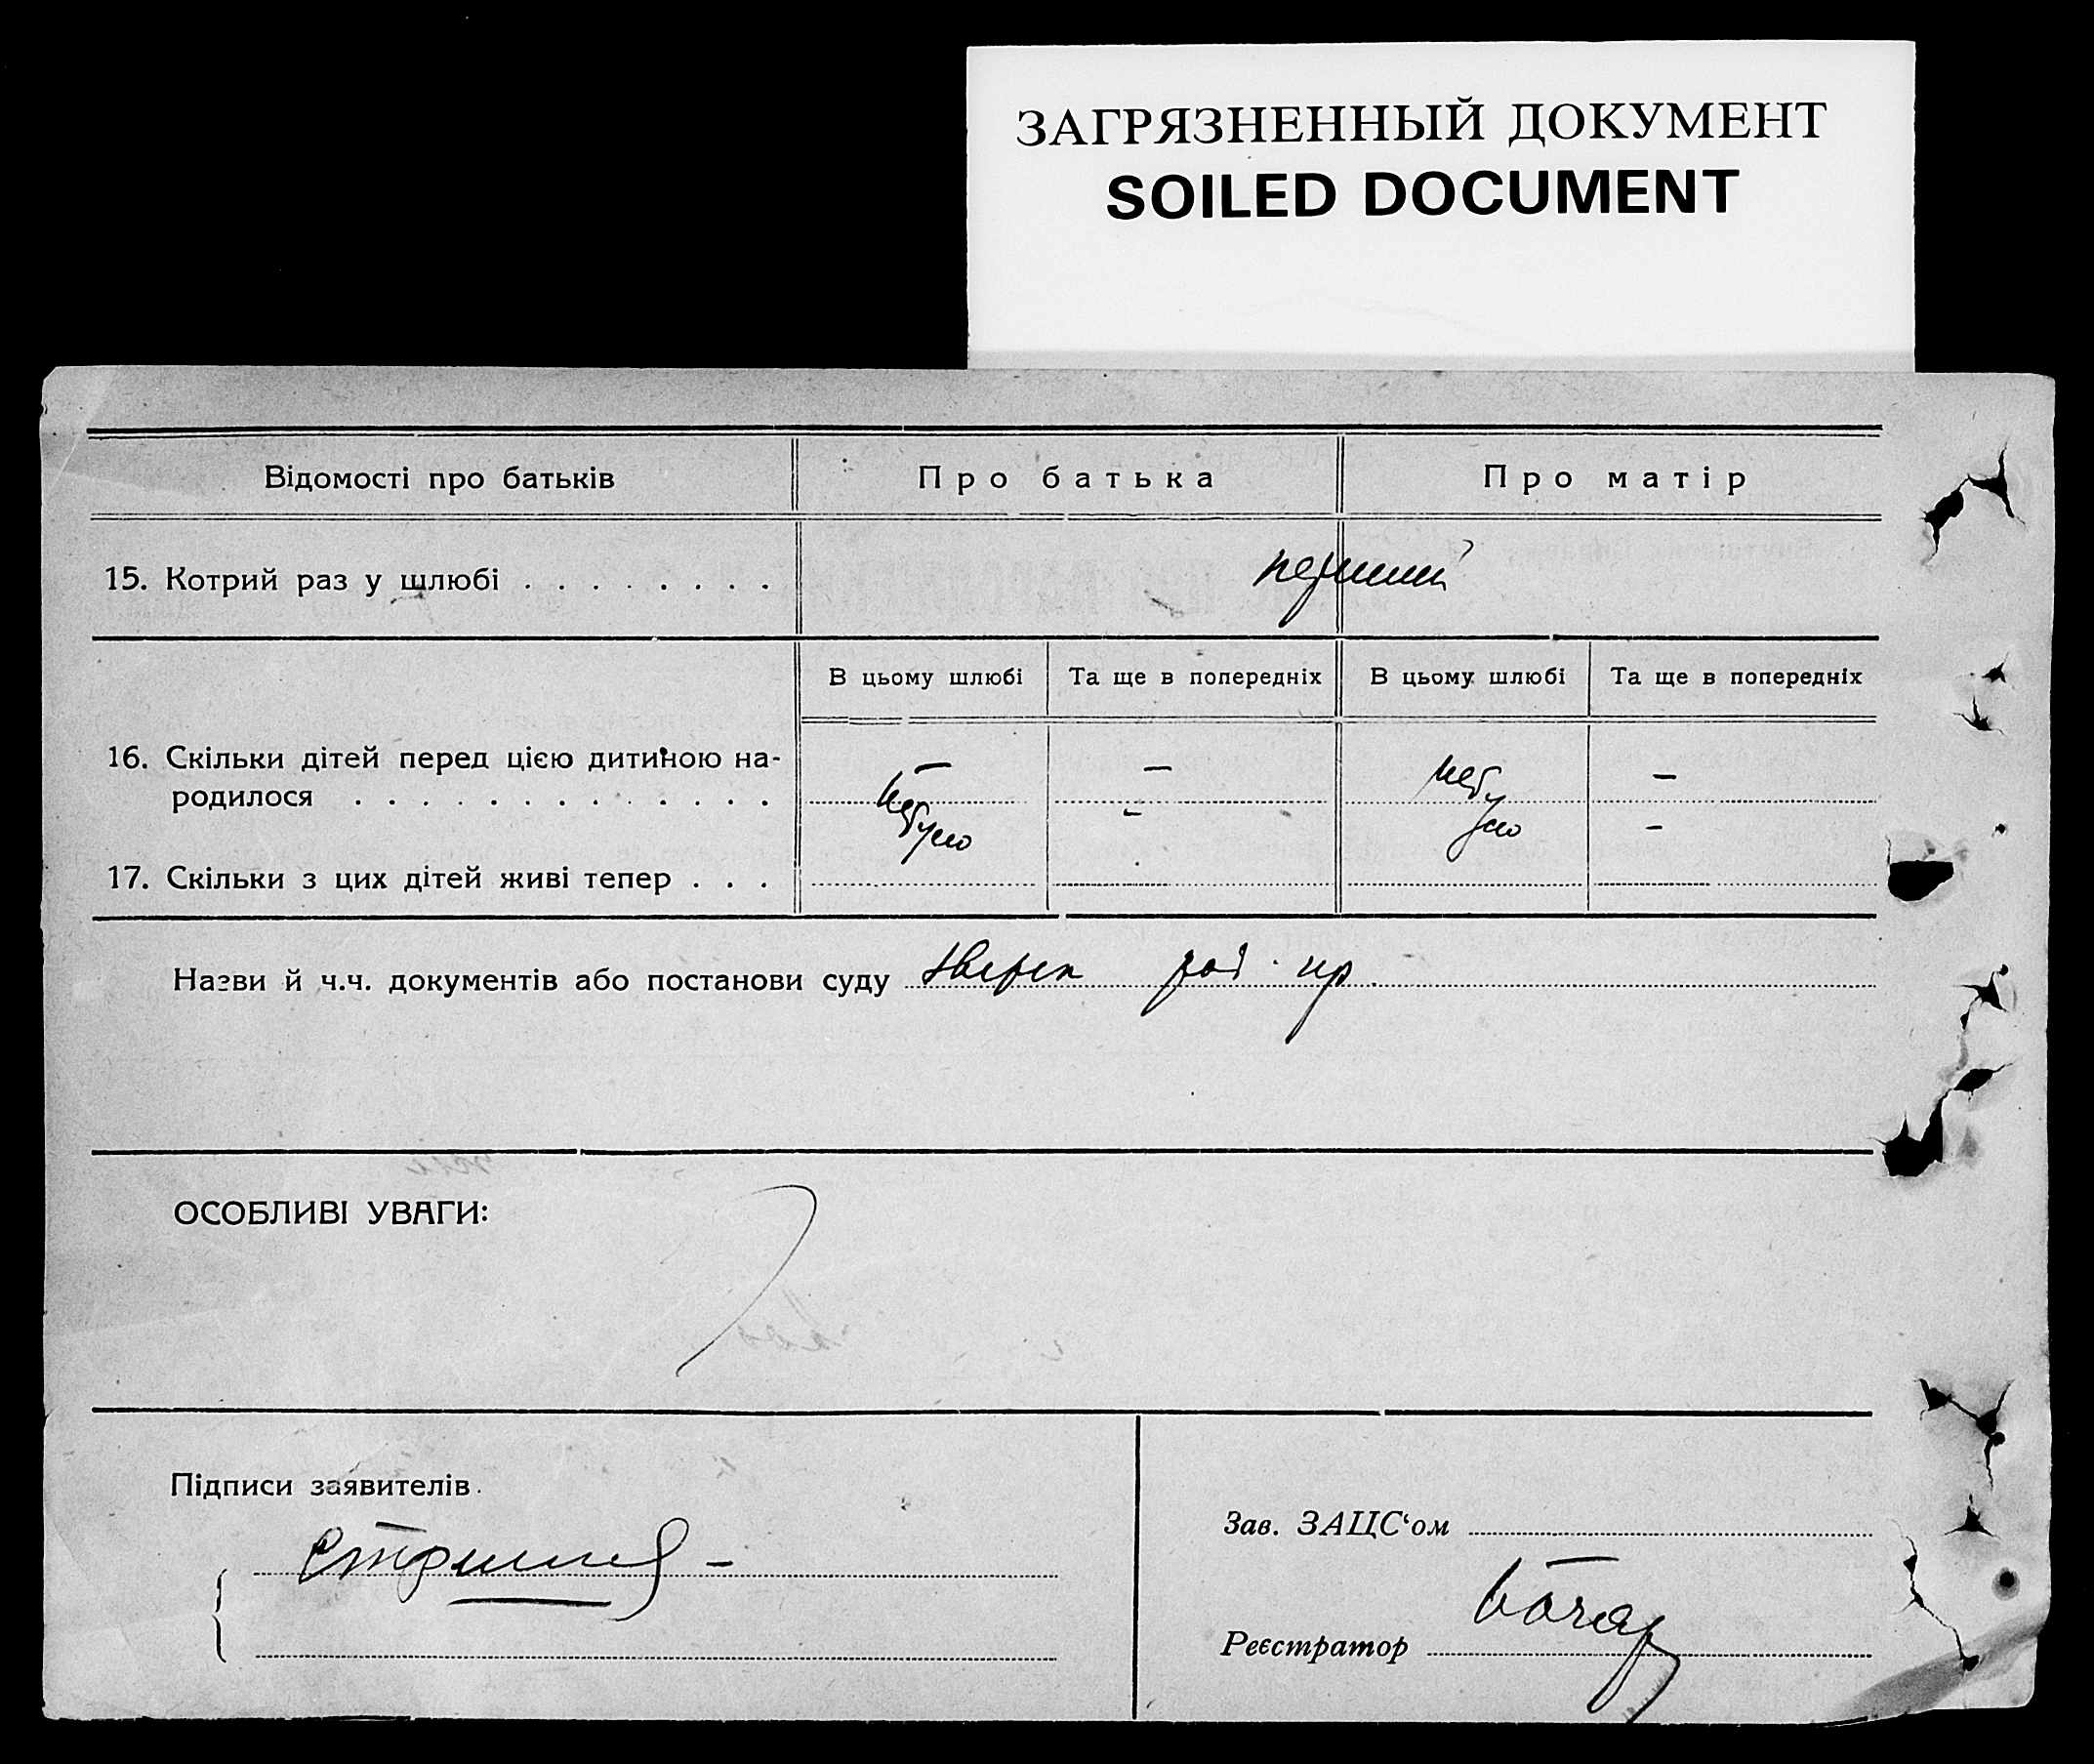 ЗАГРЯЗНЕННЫЙ ДОКУМЕНТ
SOILED DOCUMENT
Відомості про батьків Про батька Про матір
15. Котрий раз у шлюбі . . . . . . . . перший
В цьому шлюбі Та ще в попередніх В цьому шлюбі Та ще в попередніх
16. Скільки дітей перед цією дитиною на-
родилося . . . . . . . . . . . . . небуло – – небуло –
17. Скільки з цих дітей живі тепер . . . - -
Назви й ч.ч. документів або постанови суду
ОСОБЛИВІ УВАГИ:
Підписи заявителів
Зав. ЗАЦС‘ом
Реєстратор